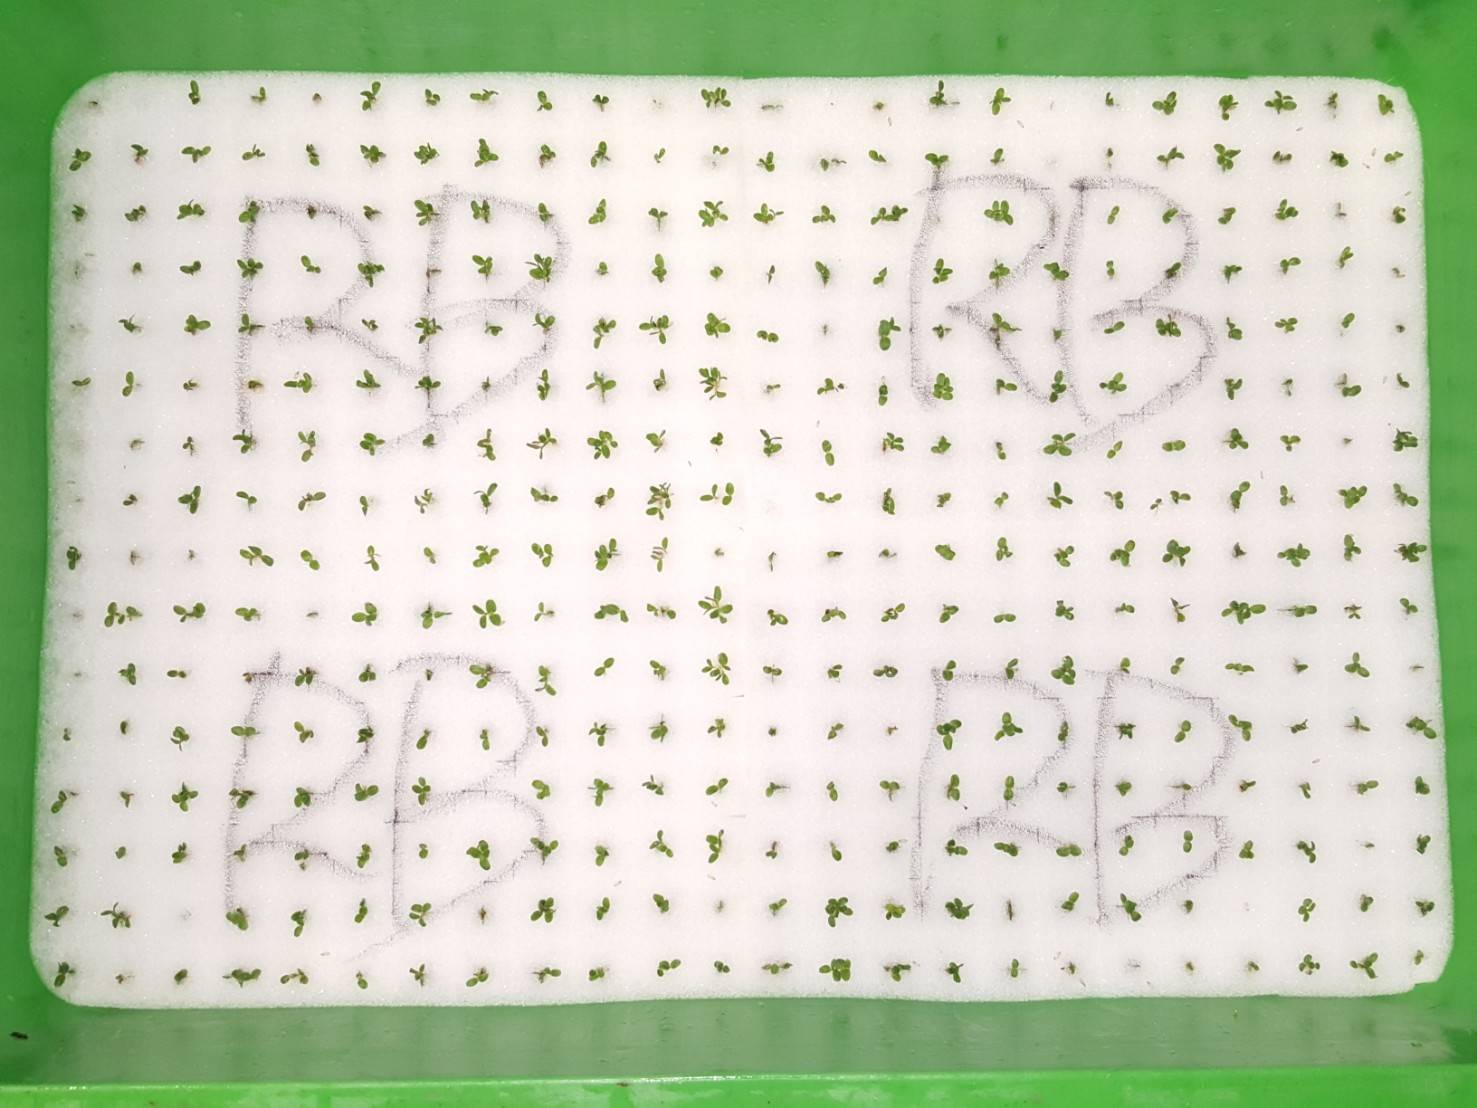 RB RB
RB RB